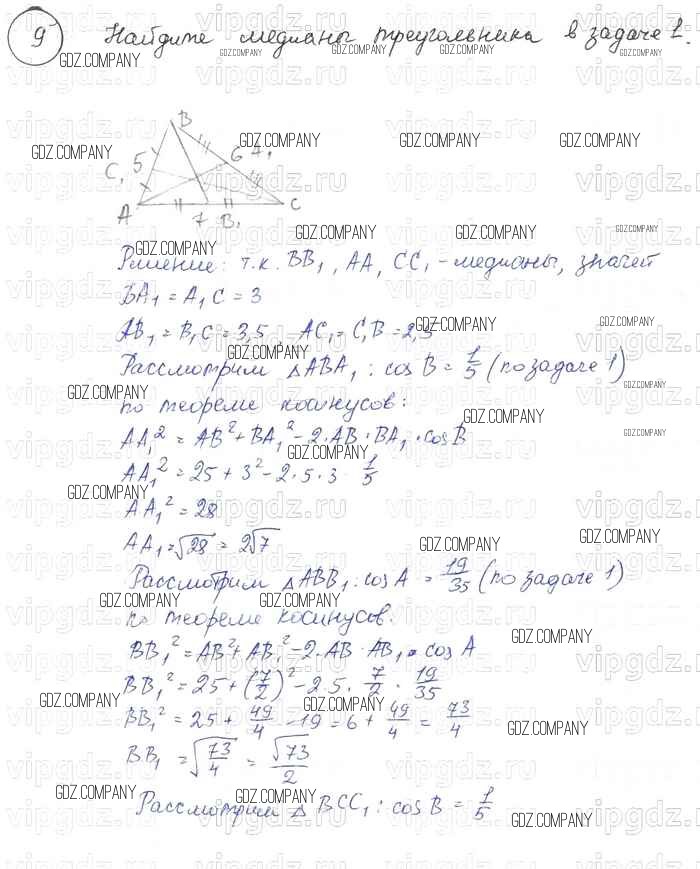 9 Найдите медианы треугольника в задаче 1.
B
C₁ 5 6 A₁
A 7 B₁ C
Решение: т.к. BB₁, AA, CC₁ - медианы, значет
BA₁ = A₁C = 3
AB₁ = B₁C = 3,5 AC₁ = C₁B = 2,5
Рассмотрим △ABA₁: cos B = 1/5 (по задаче 1)
по теореме косинусов:
AA₁² = AB² + BA₁² - 2·AB·BA₁·cosB
AA₁² = 25 + 3² - 2·5·3 1/5
AA₁² = 28
AA₁ = √28 = 2√7
Рассмотрим △ABB₁: cos A = 19/35 (по задаче 1)
по теореме косинусов.
BB₁² = AB² + AB₁² - 2·AB·AB₁·cos A
BB₁² = 25 + (7/2)² - 2·5·7/2·19/35
BB₁² = 25 + 49/4 - 19 = 6 + 49/4 = 73/4
BB₁ = √73/4 = √73/2
Рассмотрим △BCC₁: cos B = 1/5
vipgdz.ru
GDZ.COMPANY